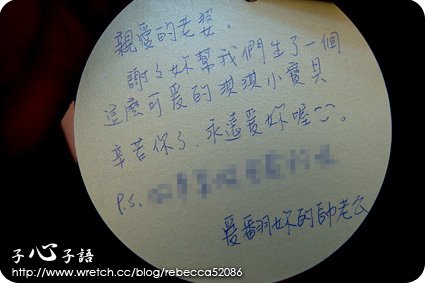 親愛的老婆,
謝々妳幫我們生了一個
這麼可愛的淇淇小寶貝
辛苦你了、永遠愛妳喔^^。
P.S.
愛翻妳的帥老公
子心子語
http://www.wretch.cc/blog/rebecca52086